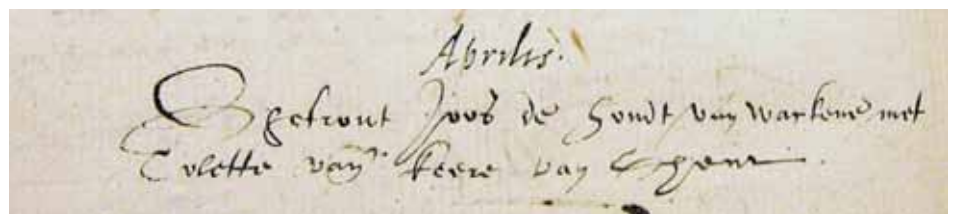 Aprilis.
Getrout Joos de Hondt van Warkene met
Colette van keere van Ghent.